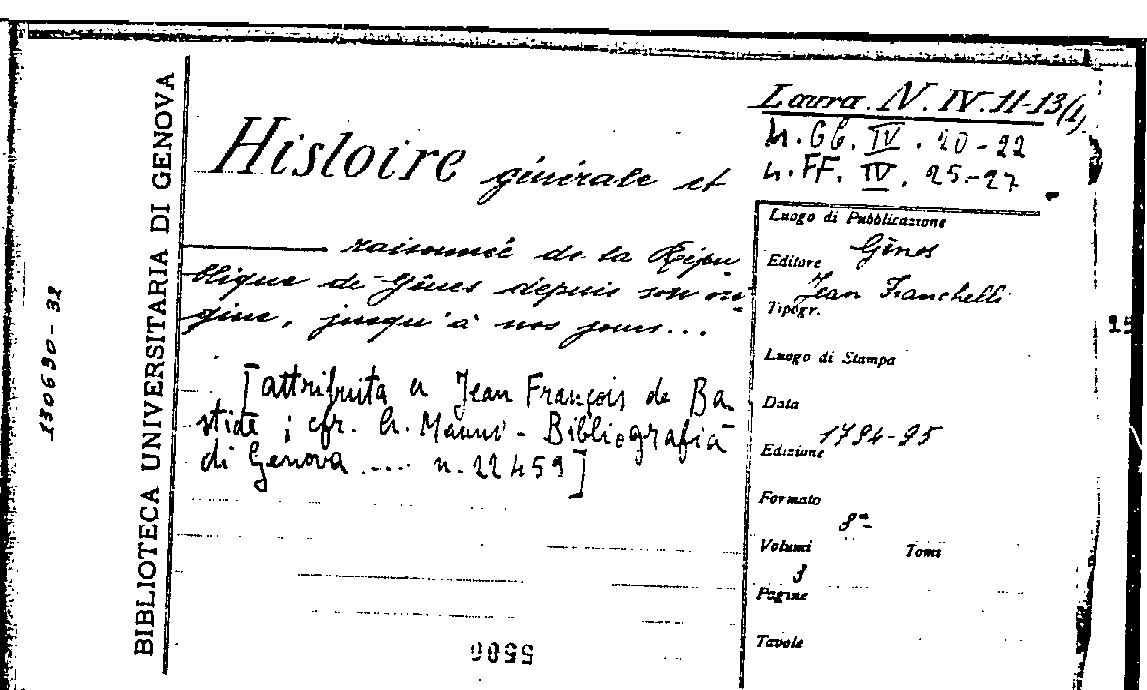 BIBLIOTECA UNIVERSITARIA DI GENOVA
130690-32
Laura. N. IV. 11-13(1)
n. GG. IV. 20-22
n. FF. IV. 25-27
Histoire générale et
raisonnée de la Répu
blique de Gênes depuis son ori
gine, jusqu'à nos jours...
[attribuita a Jean François de Ba-
stide ; cfr. A. Manno - Bibliografia
di Genova ..... n. 22459]
Luogo di Pubblicazione
Gênes
Editore
Jean Franchelli
Tipogr.
Luogo di Stampa
Data
1794-95
Edizione
Formato
8°
Volumi Tomi
3
Pagine
Tavole